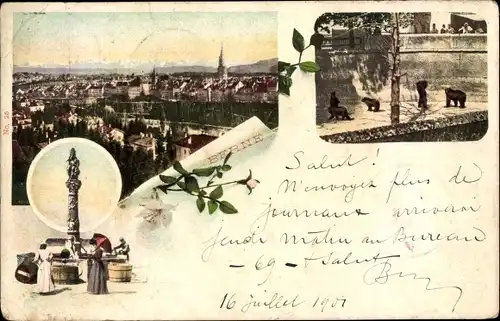 No. 25
BERNE
Salut !
N'envoyez plus de
journaux arriverai
Jeudi Matin au Bureau
- 69 - Salut
16 juillet 1901